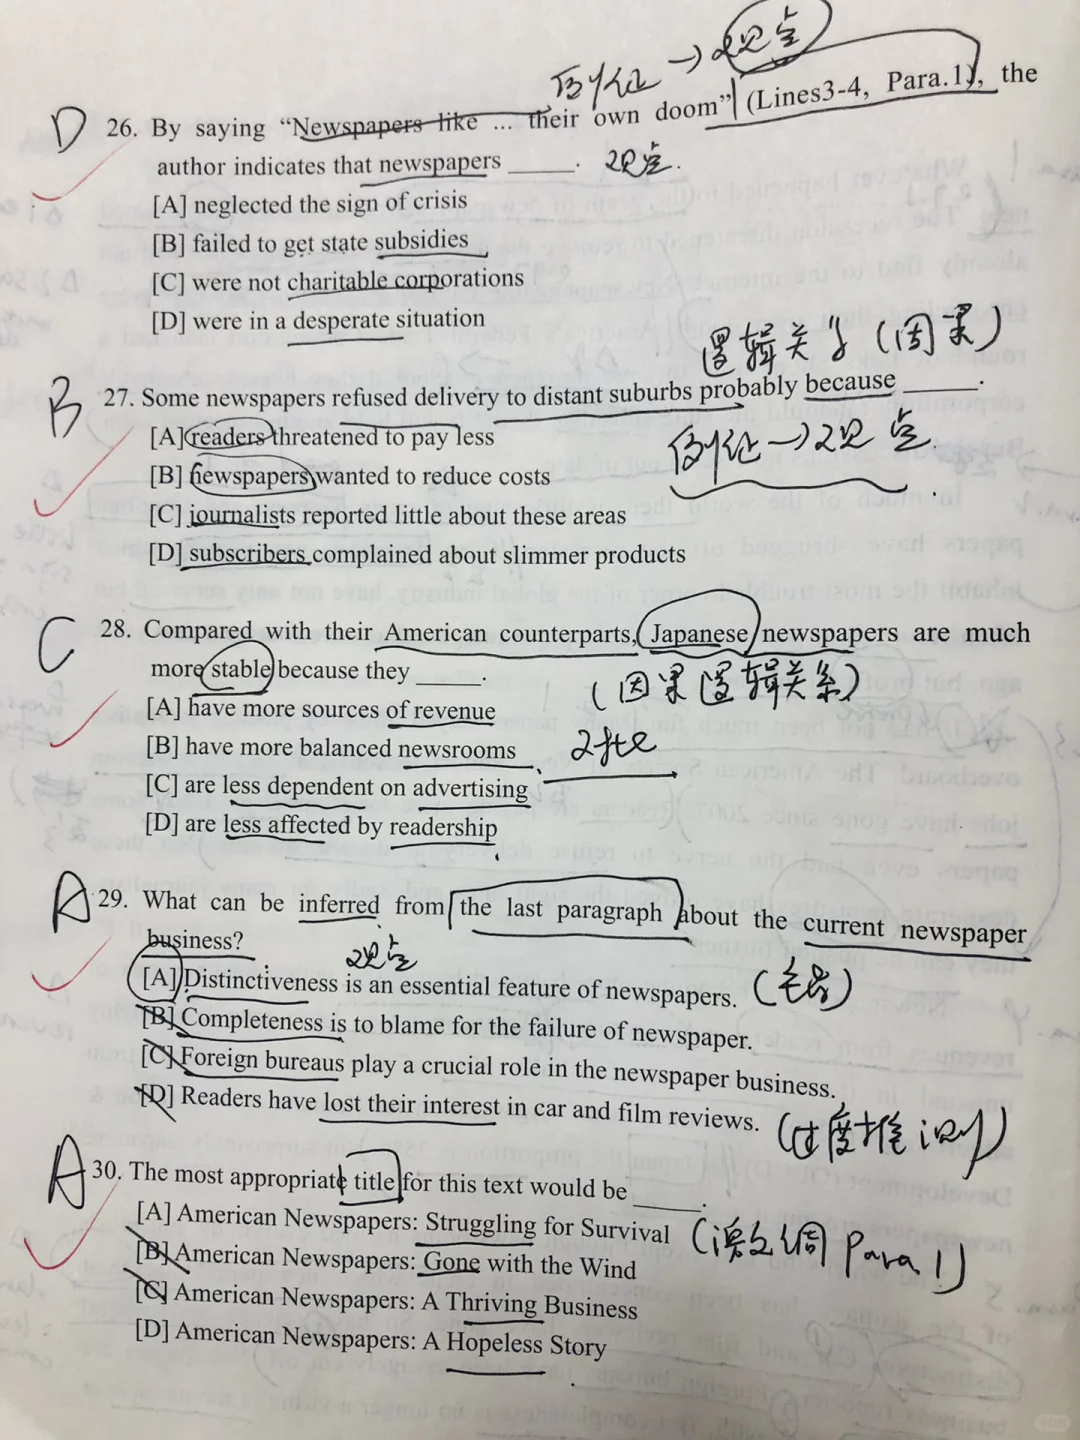 例证→观点
D 26. By saying “Newspapers like ... their own doom” (Lines3-4, Para.1), the
author indicates that newspapers ______. 观点.
[A] neglected the sign of crisis
[B] failed to get state subsidies
[C] were not charitable corporations
[D] were in a desperate situation
逻辑关系(因果)
B 27. Some newspapers refused delivery to distant suburbs probably because ______.
[A] readers threatened to pay less
例证→观点.
[B] newspapers wanted to reduce costs
[C] journalists reported little about these areas
[D] subscribers complained about slimmer products
C 28. Compared with their American counterparts, Japanese newspapers are much
more stable because they ______.
(因果逻辑关系)
[A] have more sources of revenue
[B] have more balanced newsrooms
[C] are less dependent on advertising
[D] are less affected by readership
A 29. What can be inferred from the last paragraph about the current newspaper
business?
观点
[A] Distinctiveness is an essential feature of newspapers.
[B] Completeness is to blame for the failure of newspaper.
[C] Foreign bureaus play a crucial role in the newspaper business.
[D] Readers have lost their interest in car and film reviews.
(过度推测)
A 30. The most appropriate title for this text would be ______.
[A] American Newspapers: Struggling for Survival
Para 1)
[B] American Newspapers: Gone with the Wind
[C] American Newspapers: A Thriving Business
[D] American Newspapers: A Hopeless Story